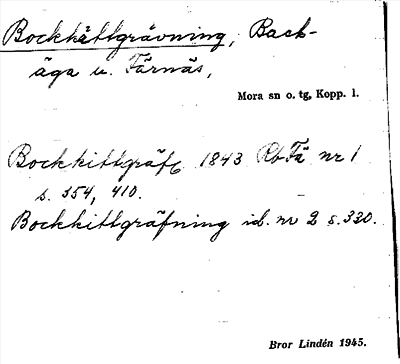 Bockkättgrävning, Back-
äga u. Färnäs,
Mora sn o. tg, Kopp. l.
Bockkittgräfg 1843 RbFä nr 1
s. 354, 410.
Bockkittgräfning ib. nr 2 s. 330.
Bror Lindén 1945.